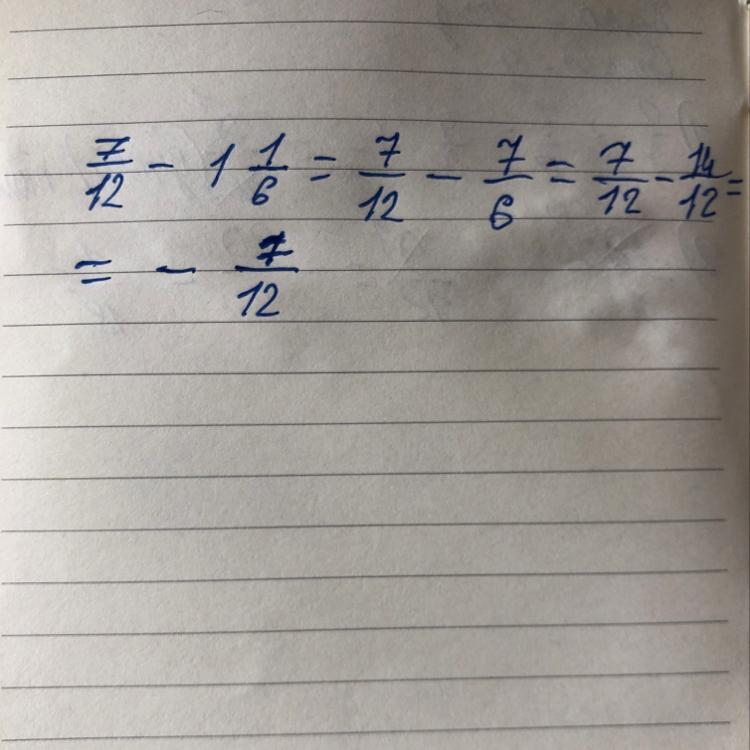 7/12 - 1 1/6 = 7/12 - 7/6 = 7/12 - 14/12 =
= - 7/12